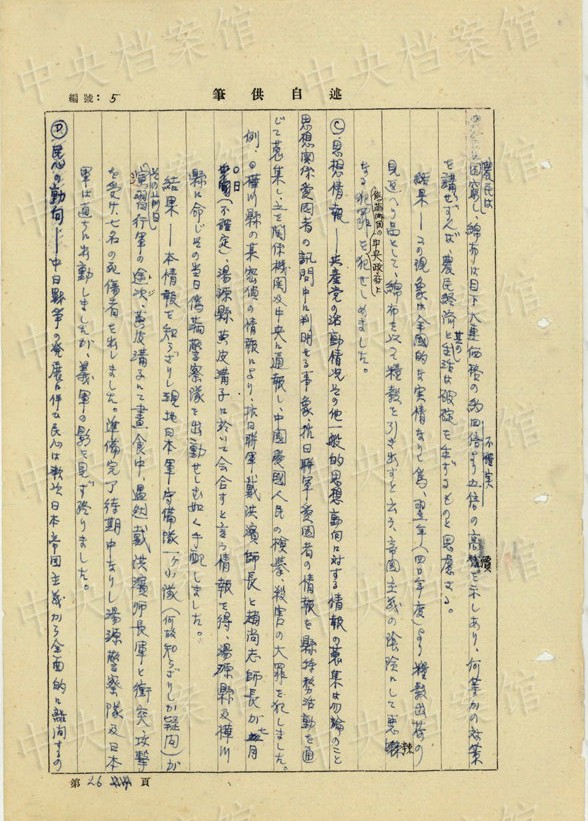 筆供自述
編號：5
農民は
困窮し、綿布は目下大連価格の約四倍より五倍の高価を示しあり、何等かの対策
不確実
を講ぜずんば、農民経済と其の生活は破綻を生ずるものと思慮さる。
結果――この現象は全国的な実情なりし為、翌年（一四〇年度）より糧穀出荷の
見返へり品として、綿布を以って糧穀を引き出すと云ふ、帝国主義の陰険にして悪
偽満洲国の中央政府と
なる犯罪を犯さしめました。
C、思想情報――共産党の活動情況その他一般的思想動向に対する情報の蒐集は勿論のこと
思想関係愛国者の訊問中に判明せる事象、抗日聯軍、愛国者の情報を県特務活動を通
じて蒐集し、之を関係機関及中央に通報し、中国愛国人民の検挙、殺害の大罪を犯しました。
例、樺川県の某密偵の情報により、抗日聯軍戴洪濱師長と趙尚志師長が七月
日（不確定）、湯源県黄皮溝子に於いて会合すと言う情報を得、湯源県及樺川
県に命じその当日偽満警察隊を出動せしむ如く手配しました。
結果――本情報を知らざりし現地日本軍守備隊一ヶ小隊（何故知らざりしか疑問）が
その当日
演習行軍の途次、黄皮溝子にて昼食中、偶然戴洪濱師長軍と衝突、攻撃
を受け、七名の死傷者を出しました。準備完了待期中なりし湯源警察隊及日本
軍は直ちに出動しましたが、義軍の影を見ず終りました。
D、民心の動向――中日戦争の発展に伴い民心は漸次日本帝国主義から全面的に離間するの
第26頁
中央档案馆